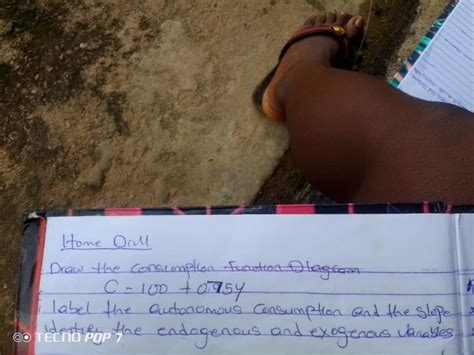 Home Drill
Draw the consumption function Diagram
C = 100 + 0.75y
label the autonomous consumption and the slope
Identify the endogenous and exogenous variables
TECNO POP 7